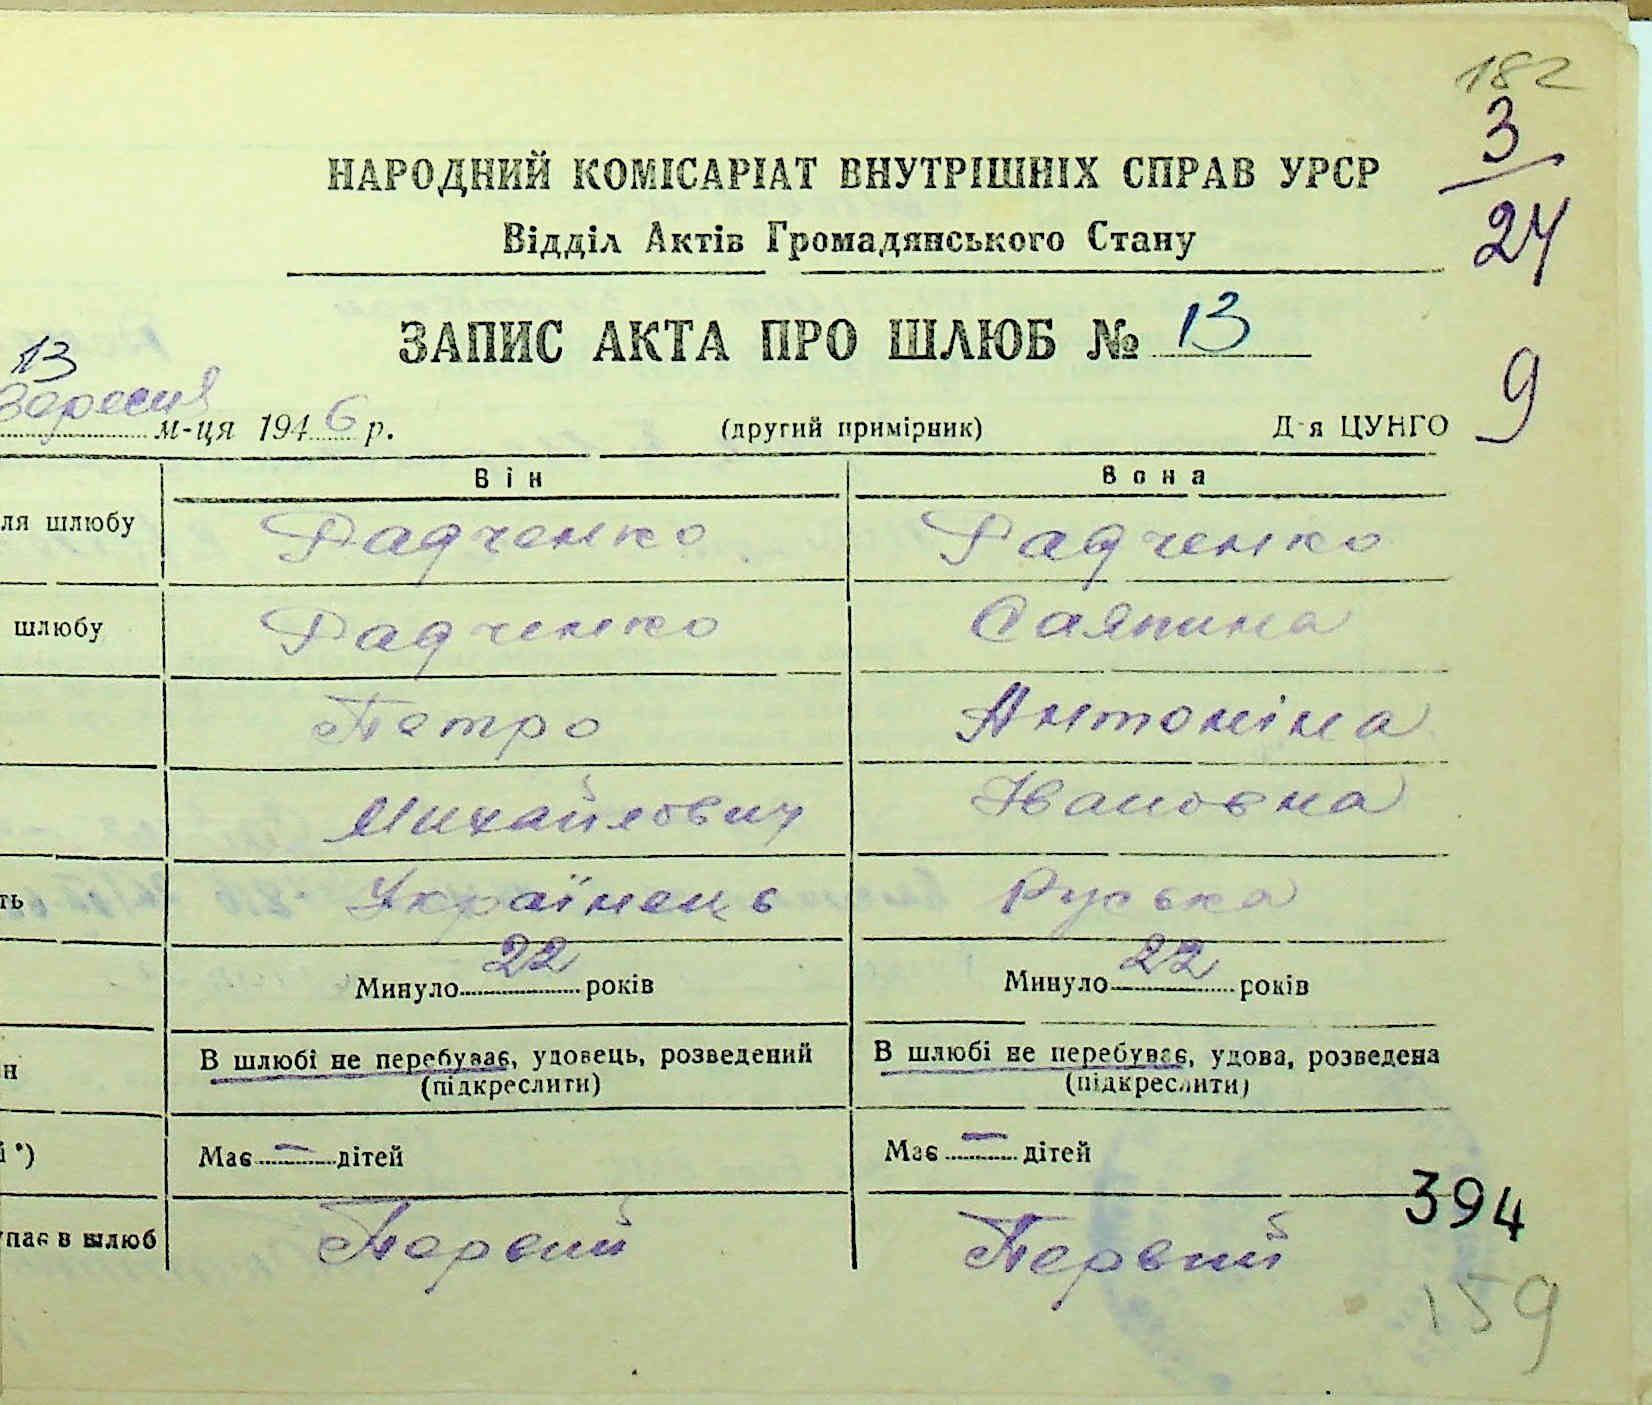 182
3
24
9
НАРОДНИЙ КОМІСАРІАТ ВНУТРІШНІХ СПРАВ УРСР
Відділ Актів Громадянського Стану
ЗАПИС АКТА ПРО ШЛЮБ № 13
13
Вересня м-ця 1946 р. (другий примірник) Д-я ЦУНГО
Він Вона
ля шлюбу Радченко Радченко
шлюбу Радченко Саяпина
Петро Антоніна
Михайлович Івановна
ть Українець Руська
Минуло 22 років Минуло 22 років
н В шлюбі не перебуває, удовець, розведений В шлюбі не перебуває, удова, розведена
(підкреслити) (підкреслити)
і *) Має — дітей Має — дітей
394
упає в шлюб Первий Первий
159